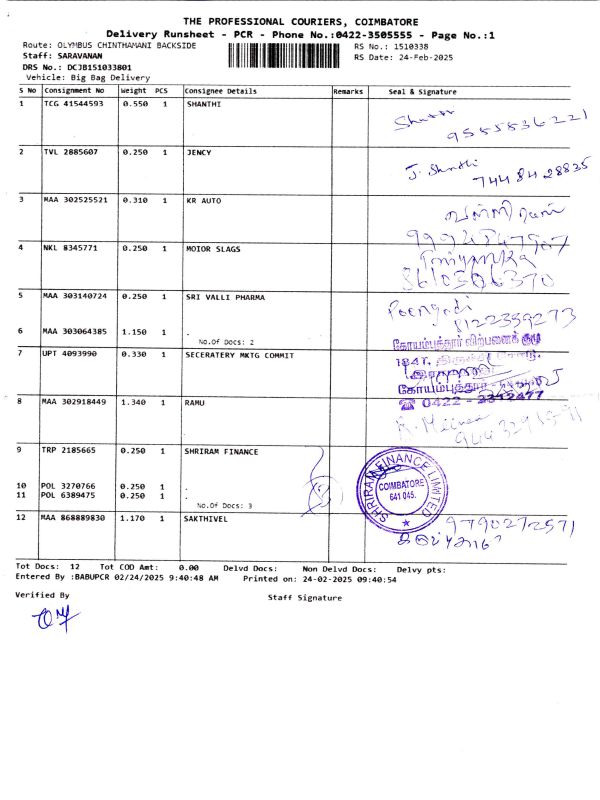 THE PROFESSIONAL COURIERS, COIMBATORE
Delivery Runsheet - PCR - Phone No.:0422-3505555 - Page No.:1
Route: OLYMBUS CHINTHAMANI BACKSIDE
RS No.: 1510338
Staff: SARAVANAN
RS Date: 24-Feb-2025
DRS No.: DCJB151033801
Vehicle: Big Bag Delivery
S No Consignment No Weight PCS Consignee Details Remarks Seal & Signature
1 TCG 41544593 0.550 1 SHANTHI
9585836221
2 TVL 2885607 0.250 1 JENCY
J. Shanthi
7448428835
3 MAA 302525521 0.310 1 KR AUTO
4 NKL 8345771 0.250 1 MOIOR SLAGS
Priyanka
8610506370
5 MAA 303140724 0.250 1 SRI VALLI PHARMA
8122359273
6 MAA 303064385 1.150 1 .
No.Of Docs: 2
கோயம்புத்தூர் விற்பனைக் குழு
7 UPT 4093990 0.330 1 SECERATERY MKTG COMMIT
1847,
கோயம்புத்தூர் -
☎ 0422 - 2342477
8 MAA 302918449 1.340 1 RAMU
9 TRP 2185665 0.250 1 SHRIRAM FINANCE
SHRIRAM FINANCE LIMITED
COIMBATORE
641 045.
10 POL 3270766 0.250 1 .
11 POL 6389475 0.250 1 .
No.Of Docs: 3
12 MAA 868889830 1.170 1 SAKTHIVEL
9790272571
Tot Docs: 12 Tot COD Amt: 0.00 Delvd Docs: Non Delvd Docs: Delvy pts:
Entered By :BABUPCR 02/24/2025 9:40:48 AM Printed on: 24-02-2025 09:40:54
Verified By
Staff Signature